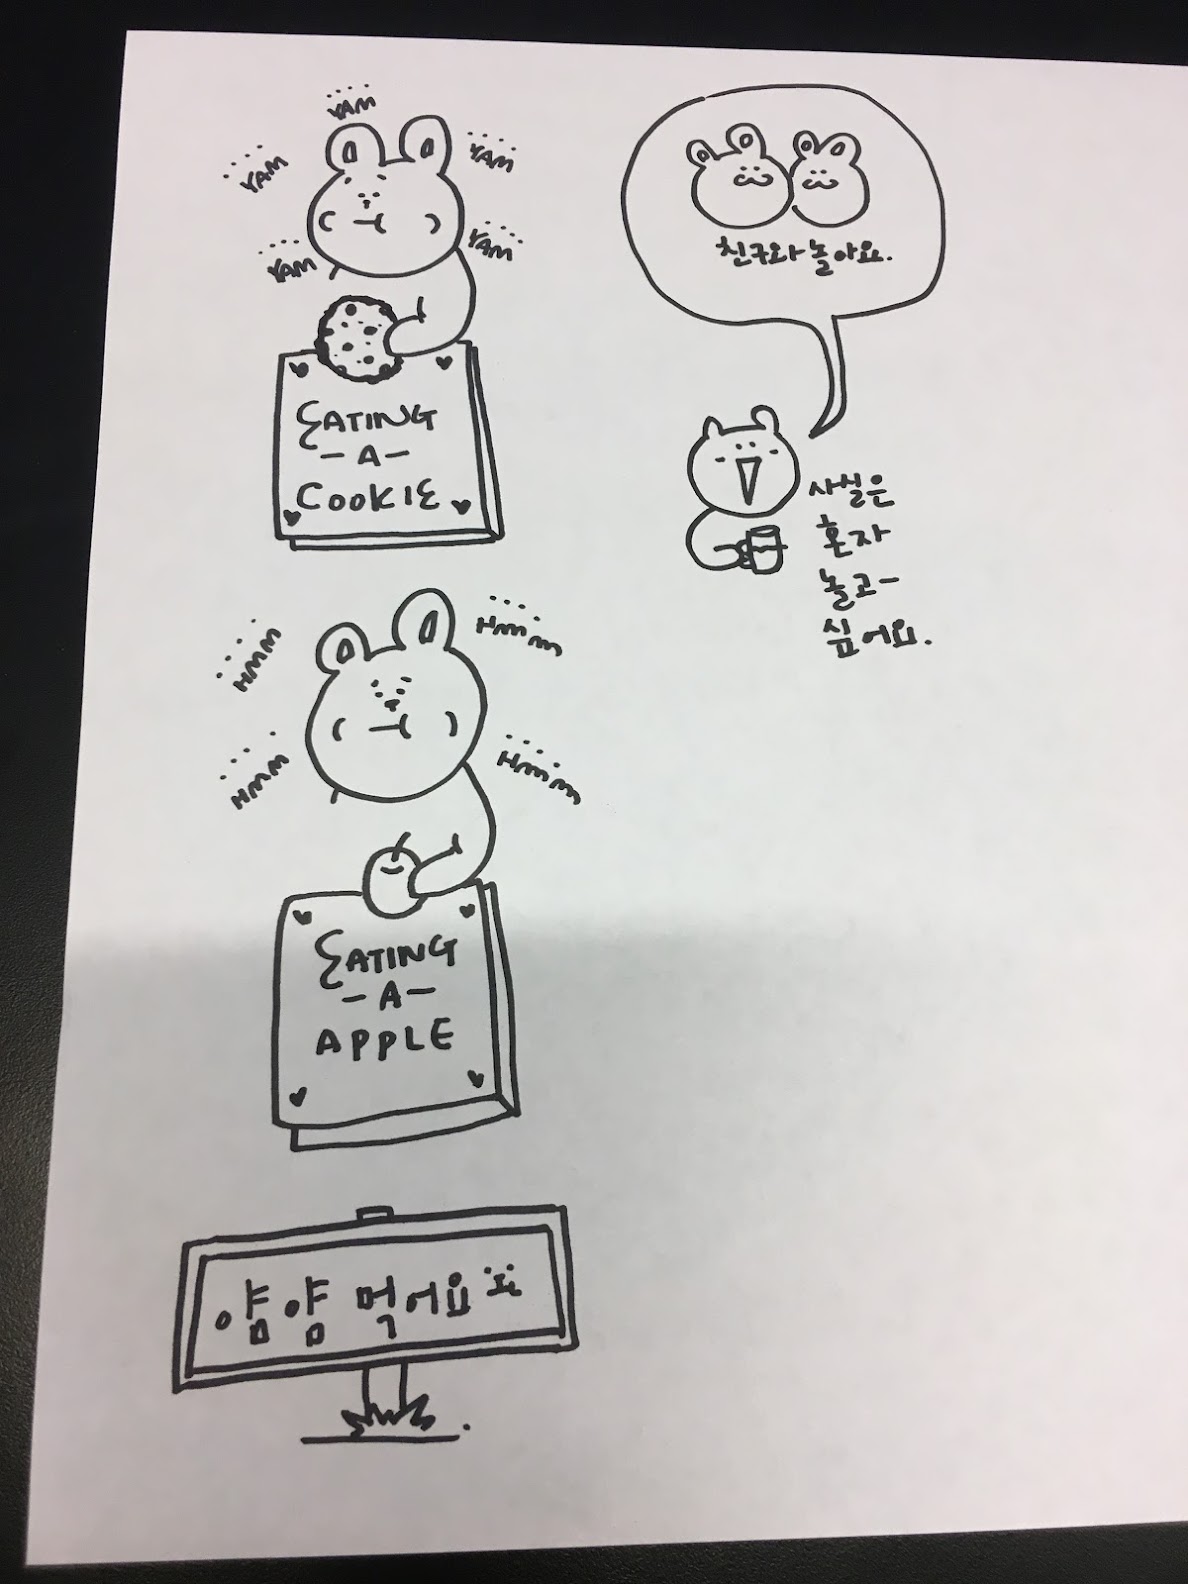 YAM
YAM
YAM
YAM
YAM
EATING
-A-
COOKIE
HMM
HMM
HMM
HMM
EATING
-A-
APPLE
얌얌 먹어요
친구와 놀아요.
사실은
혼자
놀고-
싶어요.